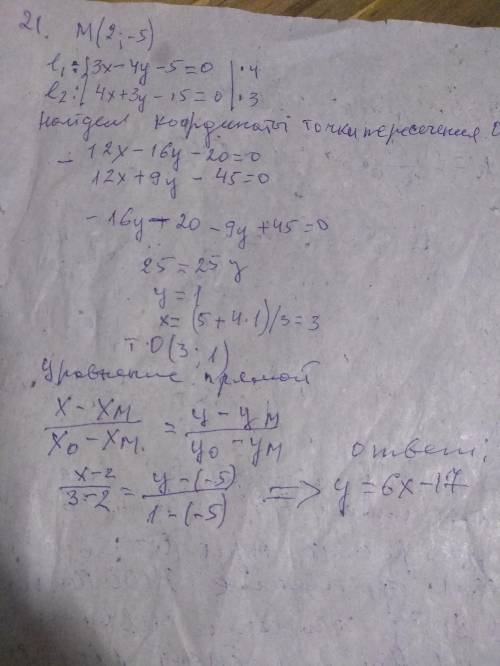 21. M(2;-5)
l₁: {3x-4y-5=0 | ·4
l₂: {4x+3y-15=0 | ·3
Найдем координаты точки пересечения
- 12x-16y-20=0
12x+9y-45=0
-16y-20-9y+45=0
25=25y
y=1
x=(5+4·1)/3=3
т·O(3;1)
Уравнение прямой
(x-xM)/(xO-xM) = (y-yM)/(yO-yM)
ответ:
(x-2)/(3-2) = (y-(-5))/(1-(-5)) => y=6x-17